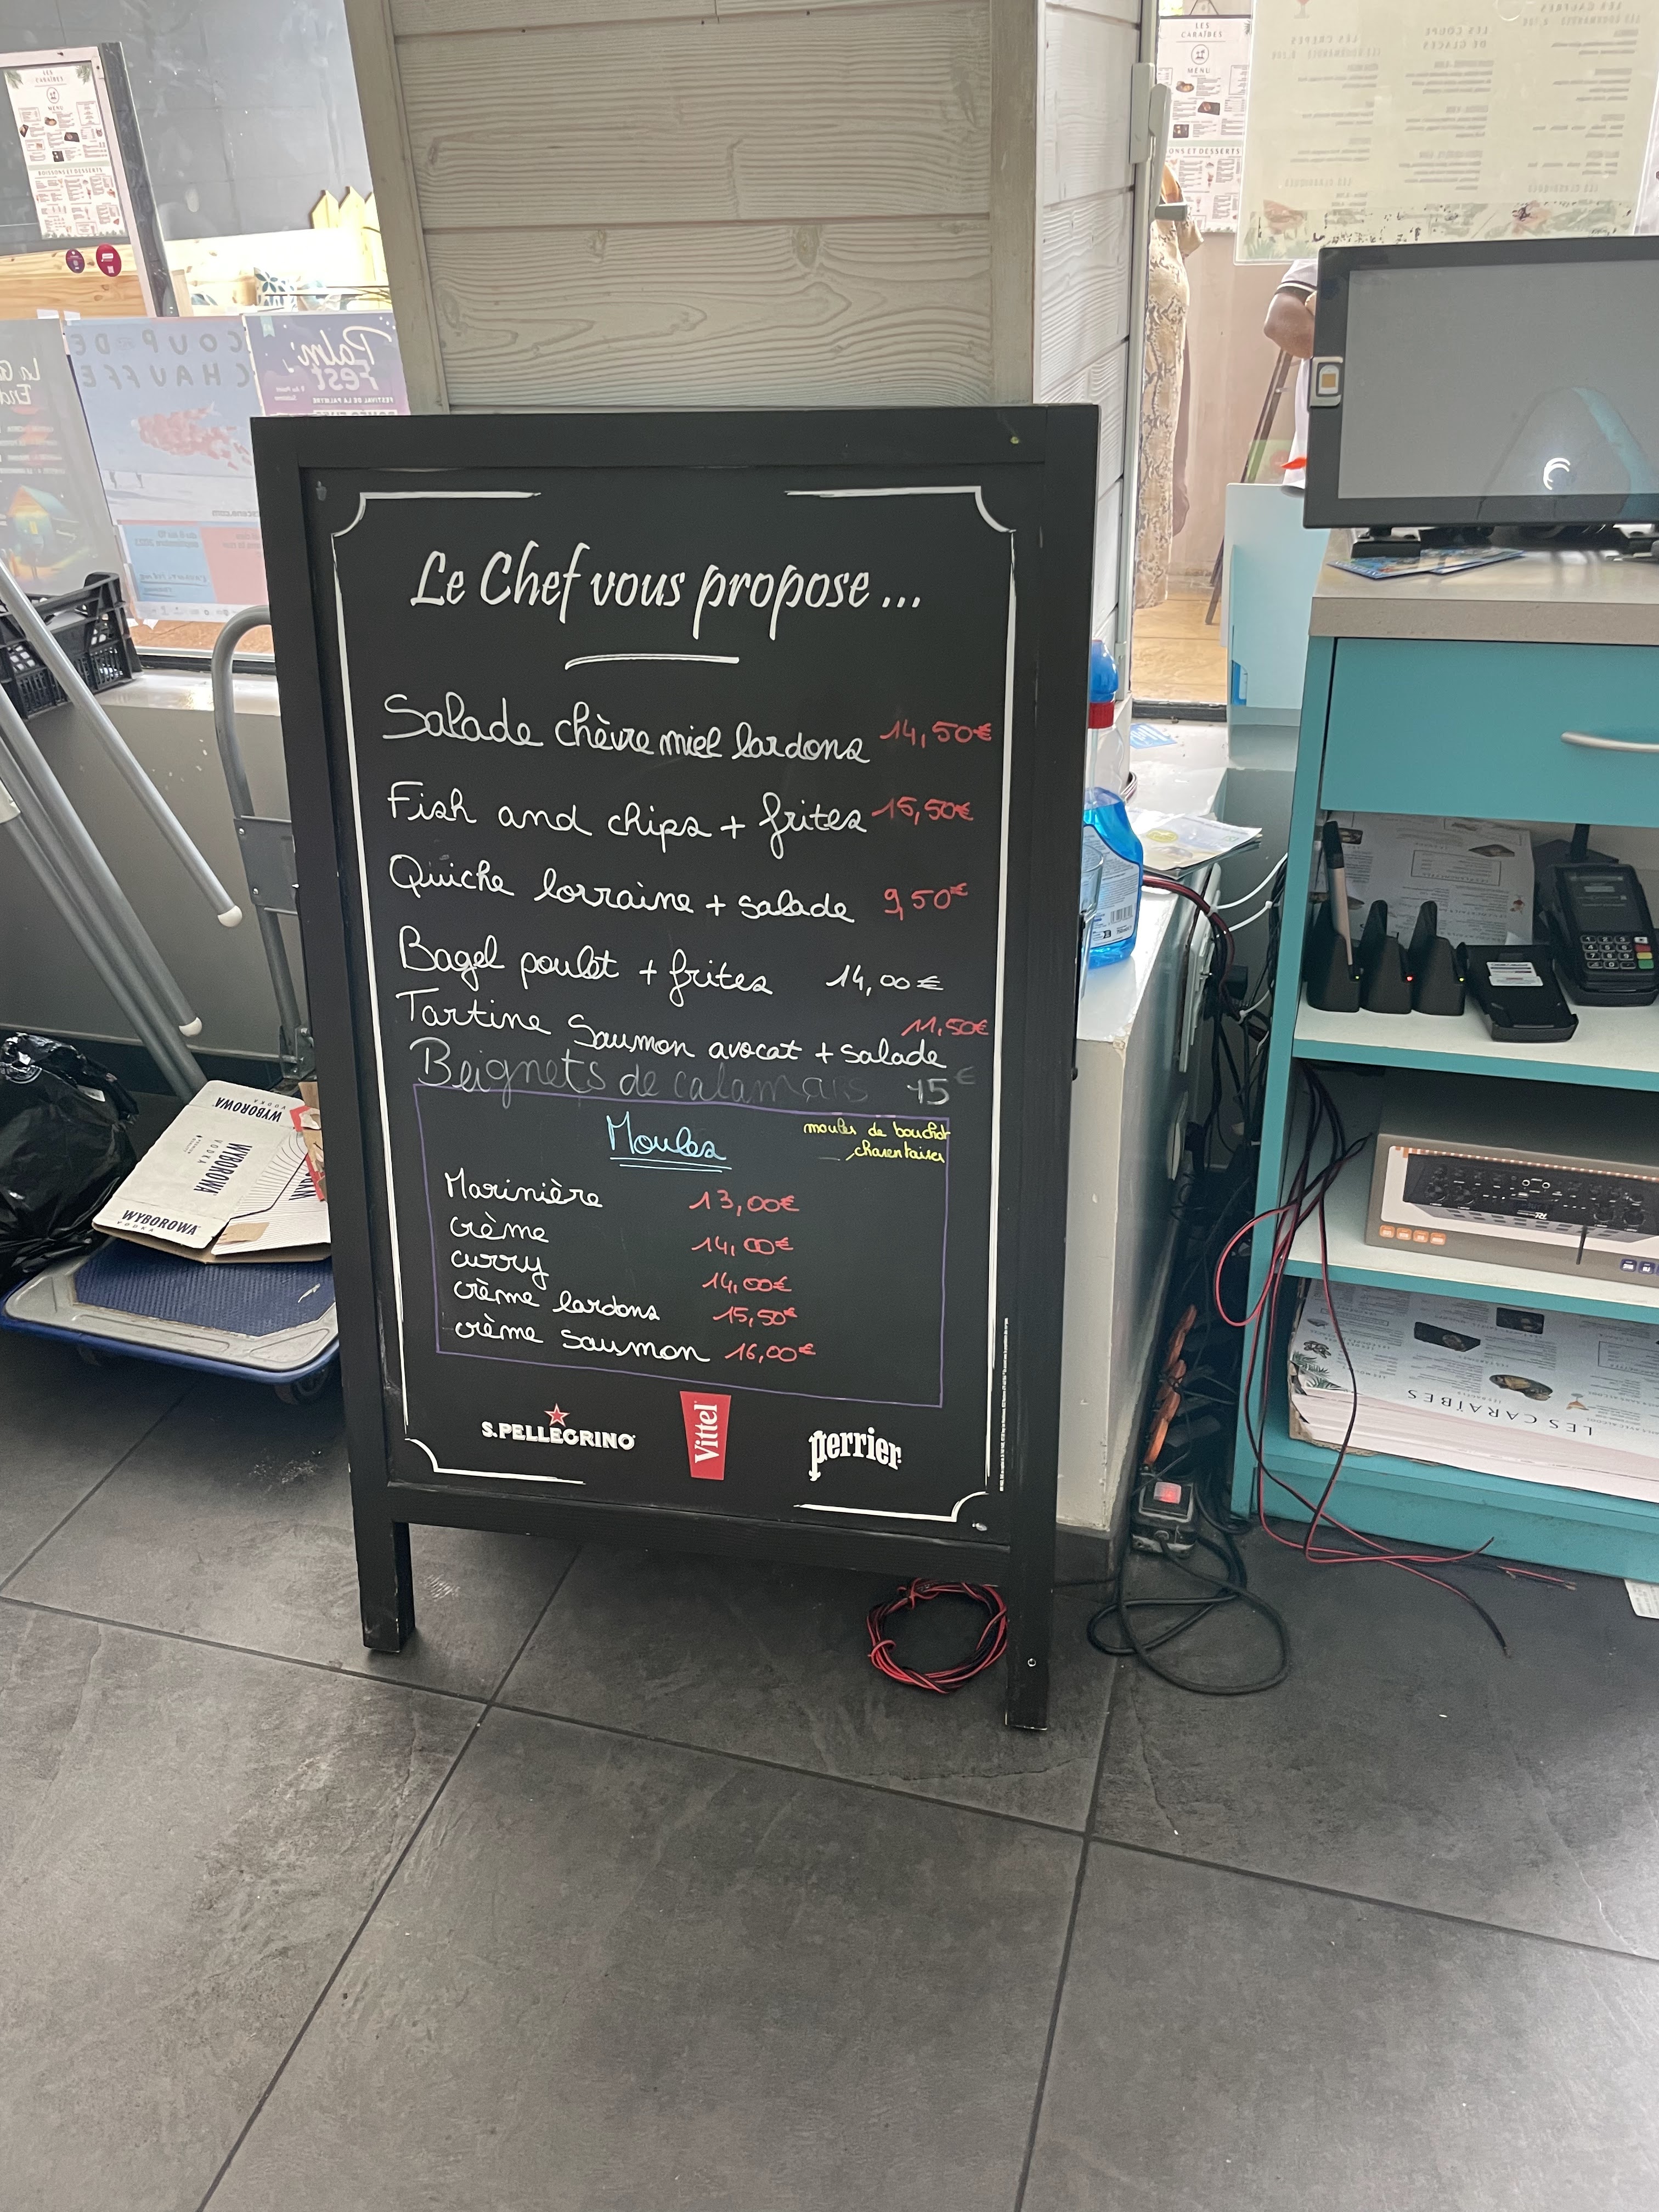 Le Chef vous propose ...
Salade chèvre miel lardons 14,50€
Fish and chips + frites 15,50€
Quiche lorraine + salade 9,50€
Bagel poulet + frites 14,00€
Tartine Saumon avocat + salade 11,50€
Beignets de calamars 15€
Moules
moules de bouchot
charentaises
Marinière 13,00€
crème 14,00€
curry 14,00€
crème lardons 15,50€
crème saumon 16,00€
S.PELLEGRINO
Vittel
perrier
LES
CARAÏBES
MENU
BOISSONS ET DESSERTS
LES
CARAÏBES
MENU
COUP DE
CHAUFFE
Palm'
Fest
FESTIVAL DE LA PALMYRE
WYBOROWA
VODKA
WYBOROWA
VODKA
WYBOROWA
VODKA
LES CARAÏBES